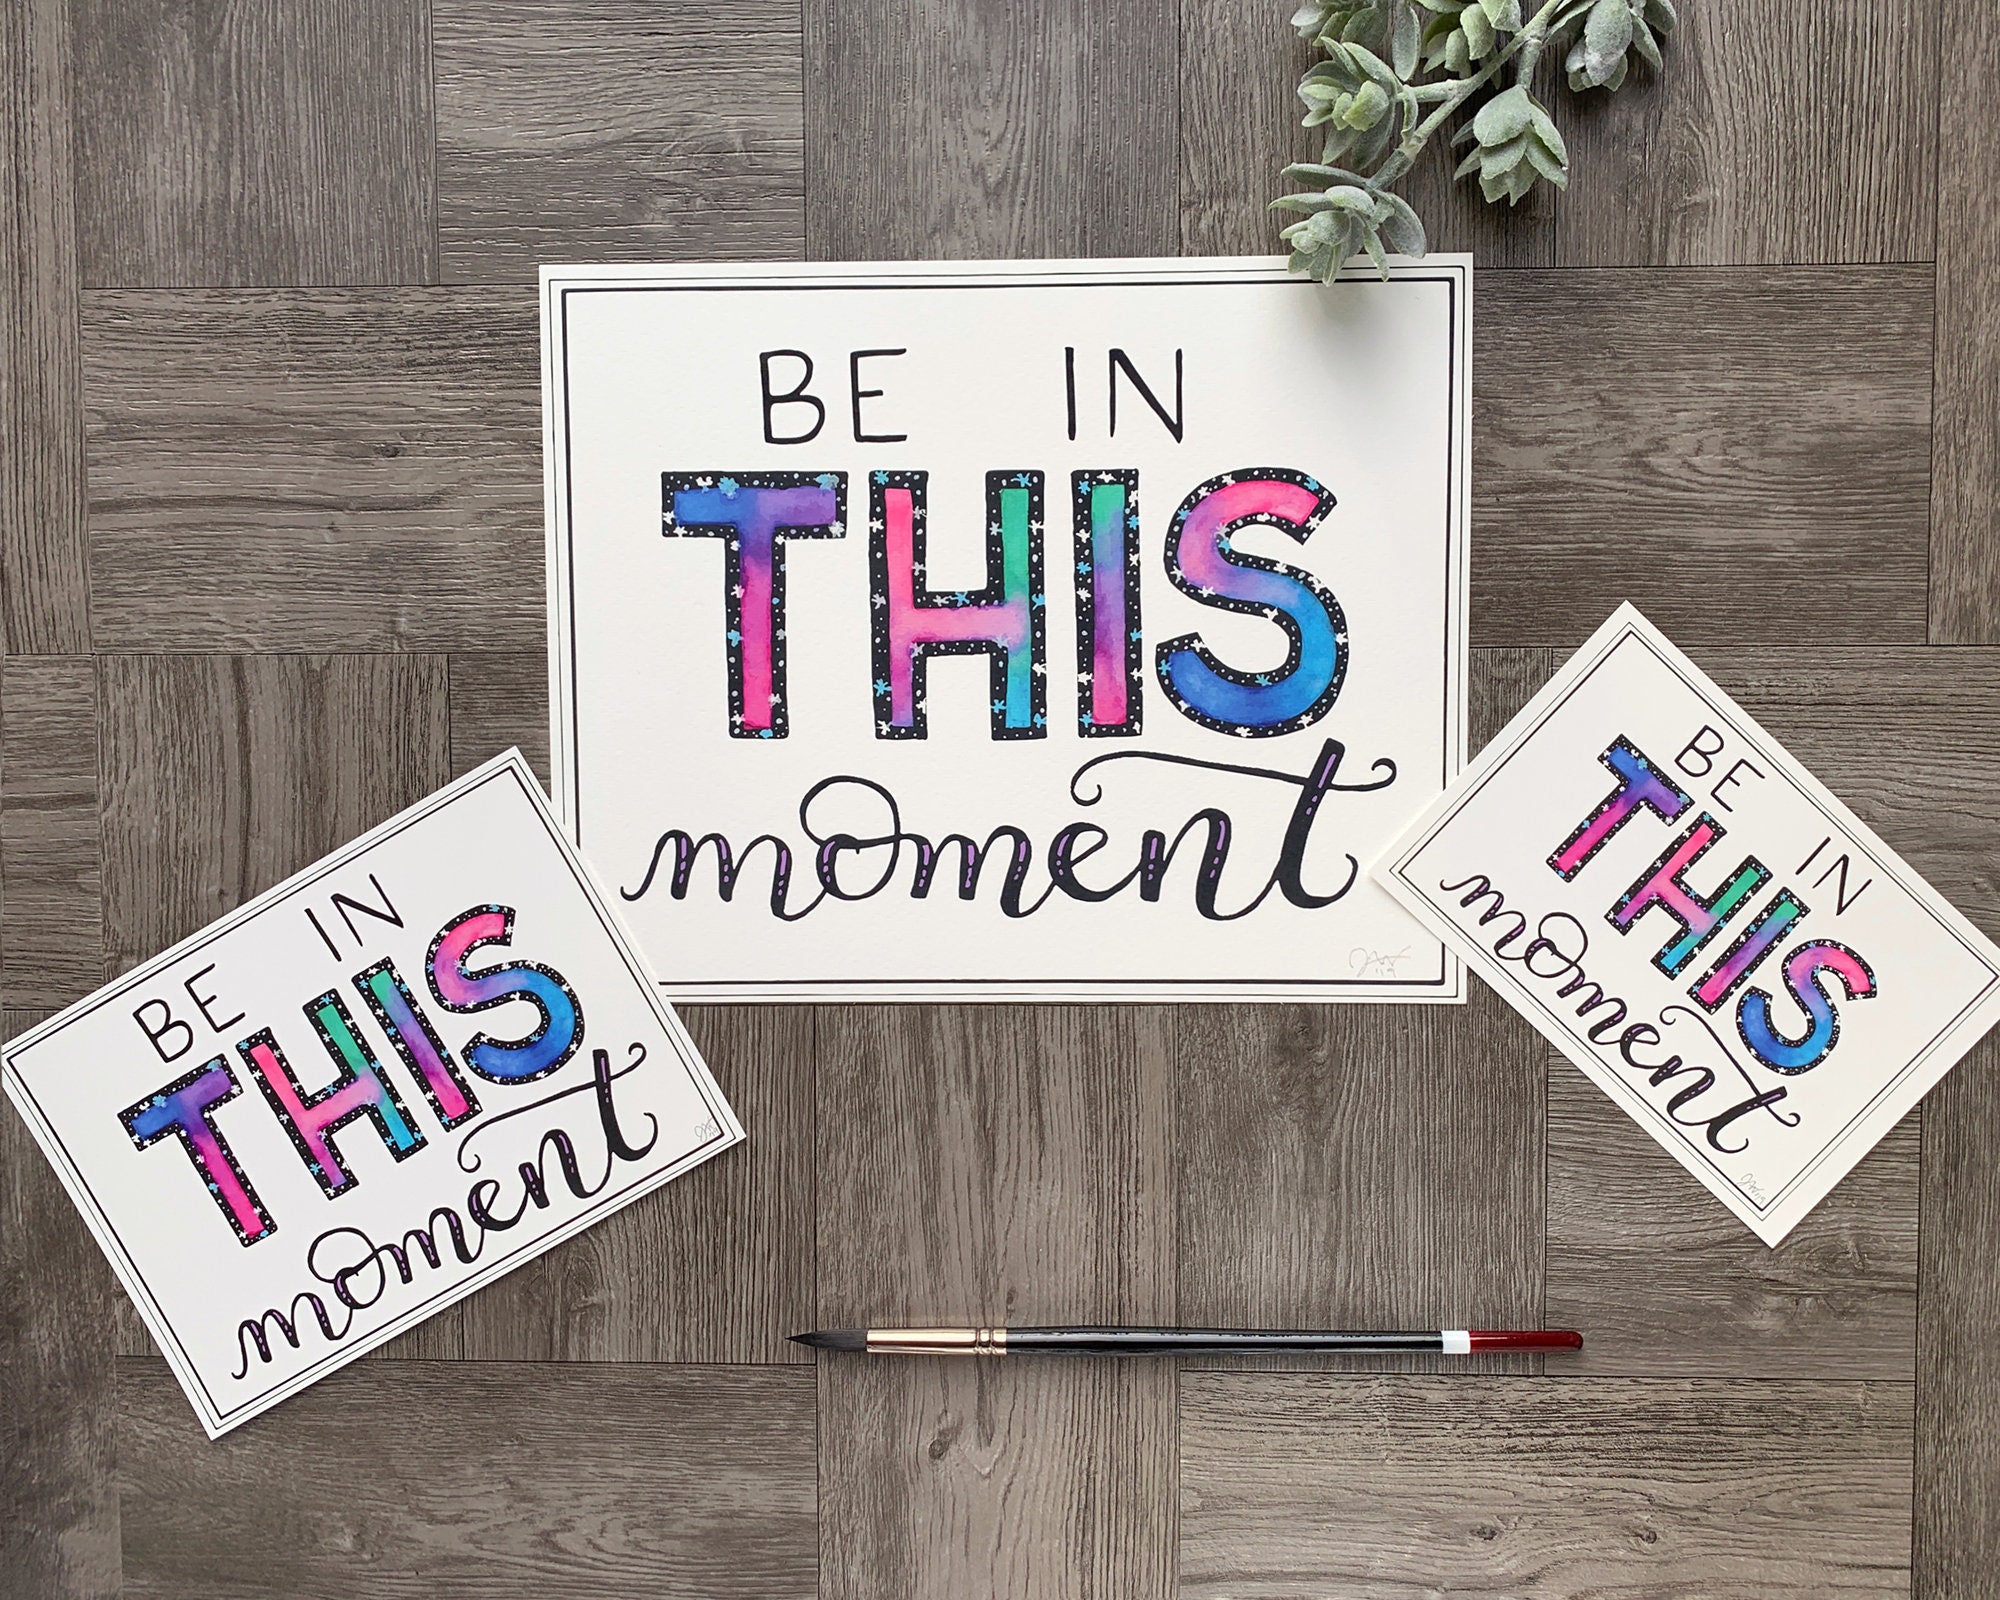 BE IN
THIS
moment
'19
BE IN
THIS
moment
BE IN
THIS
moment